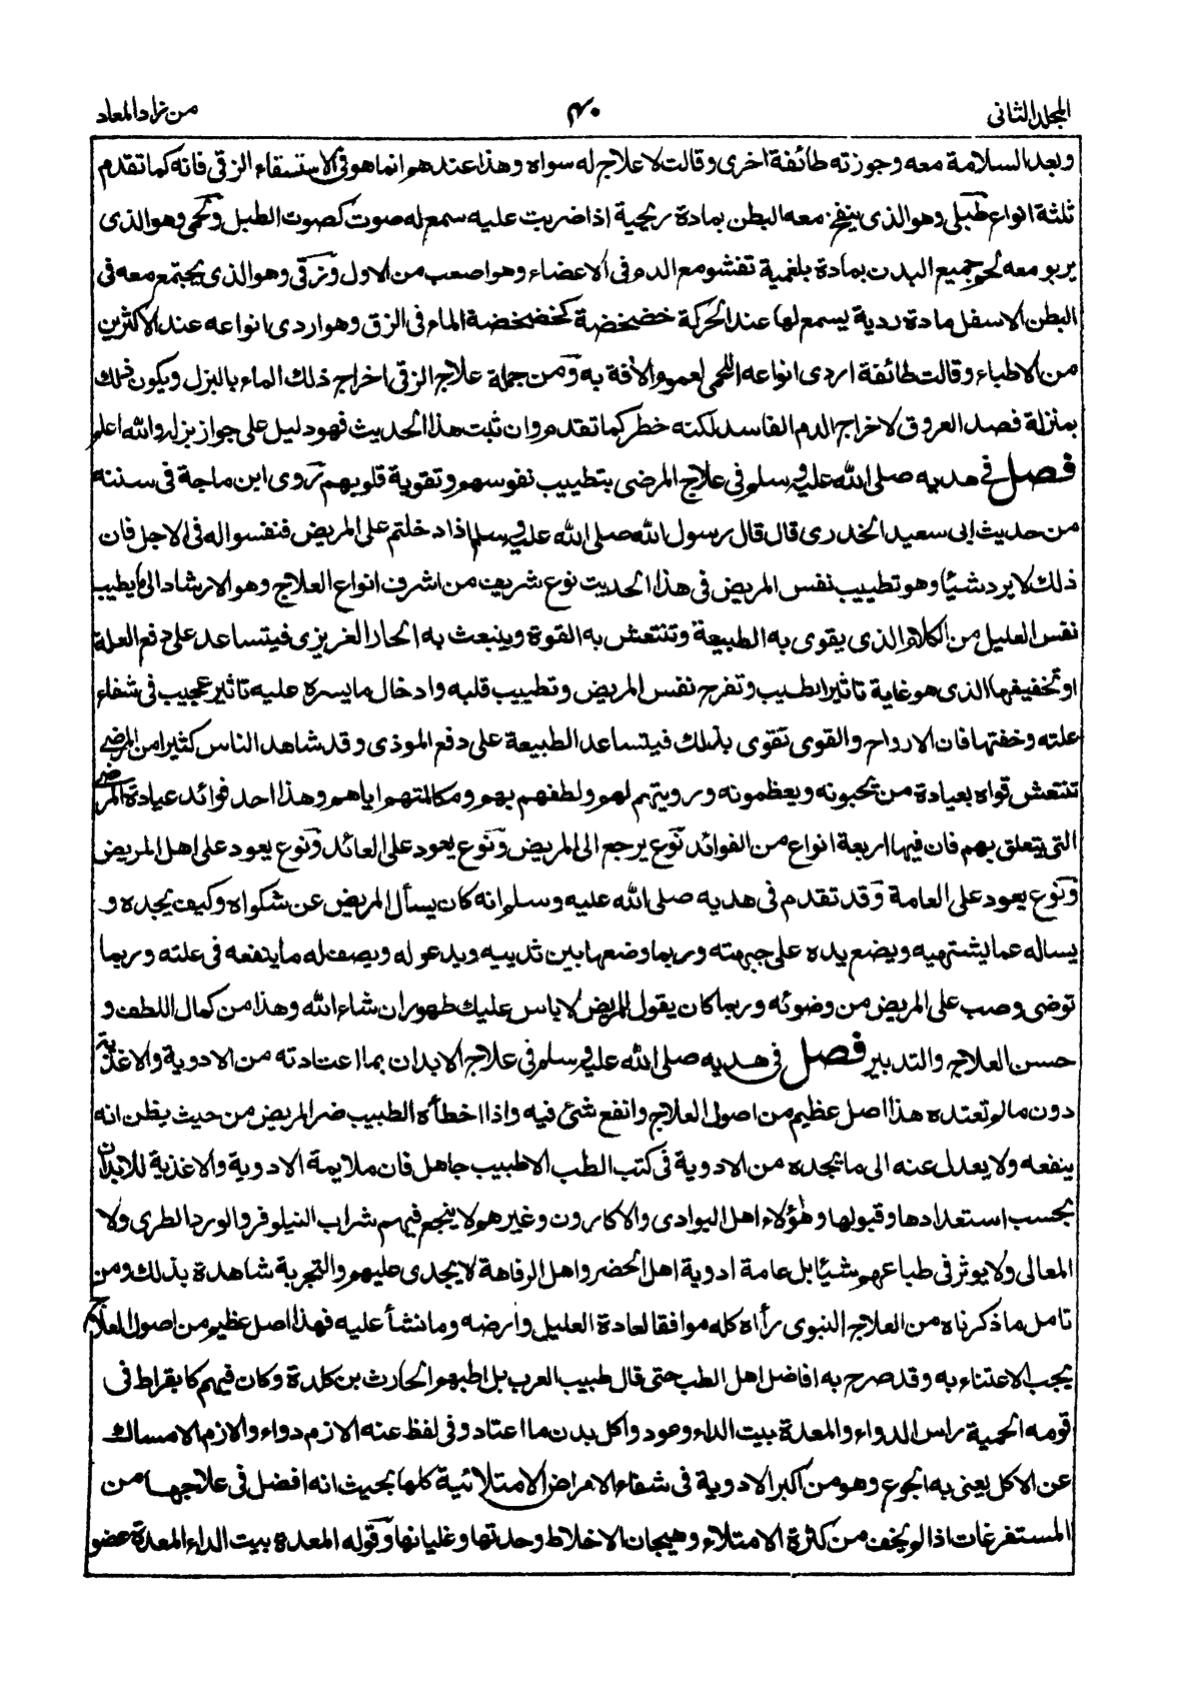 المجلد الثاني
٣٠
من زاد المعاد
وبعد السلامة معه وجوزته طائفة اخرى وقالت لا علاج له سواه وهذا عندهم انما هو في الاستسقاء الزقي فانه كما تقدم
ثلثة انواع طبلي وهو الذى ينتفخ معه البطن بمادة ريحية اذا ضربت عليه سمع له صوت كصوت الطبل ولحمي وهو الذى
يربو معه لحم جميع البدن بمادة بلغمية تفشو مع الدم فى الاعضاء وهو اصعب من الاول وزقي وهو الذى يجتمع معه فى
البطن الاسفل مادة ردية يسمع لها عند الحركة خضخضة كخضخضة الماء فى الزق وهو اردى انواعه عند الاكثرين
من الاطباء وقالت طائفة اردى انواعه اللحمى لعموم الافة به ومن جملة علاج الزقى اخراج ذلك الماء بالبزل ويكون ذلك
بمنزلة فصد العروق لاخراج الدم الفاسد لكنه خطر كما تقدم وان ثبت هذا الحديث فهو دليل على جواز بزله والله اعلم
فصل فى هديه صلى الله عليه وسلم فى علاج المرضى بتطييب نفوسهم وتقوية قلوبهم روى ابن ماجة فى سننه
من حديث ابى سعيد الخدرى قال قال رسول الله صلى الله عليه وسلم اذا دخلتم على المريض فنفسوا له فى الاجل فان
ذلك لا يرد شيئا وهو تطييب نفس المريض فى هذا الحديث نوع شريف من اشرف انواع العلاج وهو الارشاد الى ما يطيب
نفس العليل من الكلام الذى يقوى به الطبيعة وتنتعش به القوة وينبعث به الحار الغريزى فيتساعد على دفع العلة
او تخفيفها الذى هو غاية تاثير الطبيب وتفرح نفس المريض وتطييب قلبه وادخال ما يسره عليه تاثير عجيب فى شفاء
علته وخفتها فان الارواح والقوى تقوى بذلك فيتساعد الطبيعة على دفع الموذى وقد شاهد الناس كثيرا من المرضى
تنتعش قواه بعيادة من يحبونه ويعظمونه ورويتهم لهم ولطفهم بهم ومكالمتهم اياهم وهذا احد فوائد عيادة المرضى
التى يتعلق بهم فان فيها اربعة انواع من الفوائد نوع يرجع الى المريض ونوع يعود على العائد ونوع يعود على اهل المريض
ونوع يعود على العامة وقد تقدم فى هديه صلى الله عليه وسلم انه كان يسأل المريض عن شكواه وكيف يجده و
يساله عما يشتهيه ويضع يده على جبهته وربما وضعها بين ثدييه ويدعو له ويصف له ما ينفعه فى علته وربما
توضى وصب على المريض من وضوئه وربما كان يقول للمريض لا باس عليك طهور ان شاء الله وهذا من كمال اللطف و
حسن العلاج والتدبير فصل فى هديه صلى الله عليه وسلم فى علاج الابدان بما اعتادته من الادوية والاغذية
دون مالم تعتده هذا اصل عظيم من اصول العلاج وانفع شئ فيه واذا اخطأه الطبيب ضر المريض من حيث يظن انه
ينفعه ولا يعدل عنه الى ما تجده من الادوية فى كتب الطب الا طبيب جاهل فان ملايمة الادوية والاغذية للابدان
بحسب استعدادها وقبولها وهؤلاء اهل البوادى والاكارون وغيرهم لا ينجع فيهم شراب النيلوفر والورد الطرى ولا
المغالى ولا يوثر فى طباعهم شيئا بل عامة ادوية اهل الحضر واهل الرفاهة لا يجدى عليهم والتجربة شاهدة بذلك ومن
تامل ما ذكرناه من العلاج النبوى رأه كله موافقا لعادة العليل وارضه وما نشأ عليه فهذا اصل عظيم من اصول العلاج
يجب الاعتناء به وقد صرح به افاضل اهل الطب حتى قال طبيب العرب بل اطبهم الحارث بن كلدة وكان فيهم كابقراط فى
قومه الحمية راس الدواء والمعدة بيت الداء وعودوا كل بدن ما اعتاد وفى لفظ عنه الازم دواء والازم الامساك
عن الاكل يعنى به الجوع وهو من اكبر الادوية فى شفاء الامراض الامتلائية كلها بحيث انه افضل فى علاجها من
المستفرغات اذا لم يخف من كثرة الامتلاء وهيجان الاخلاط وحدتها وغليانها وقوله المعدة بيت الداء المعدة عضو